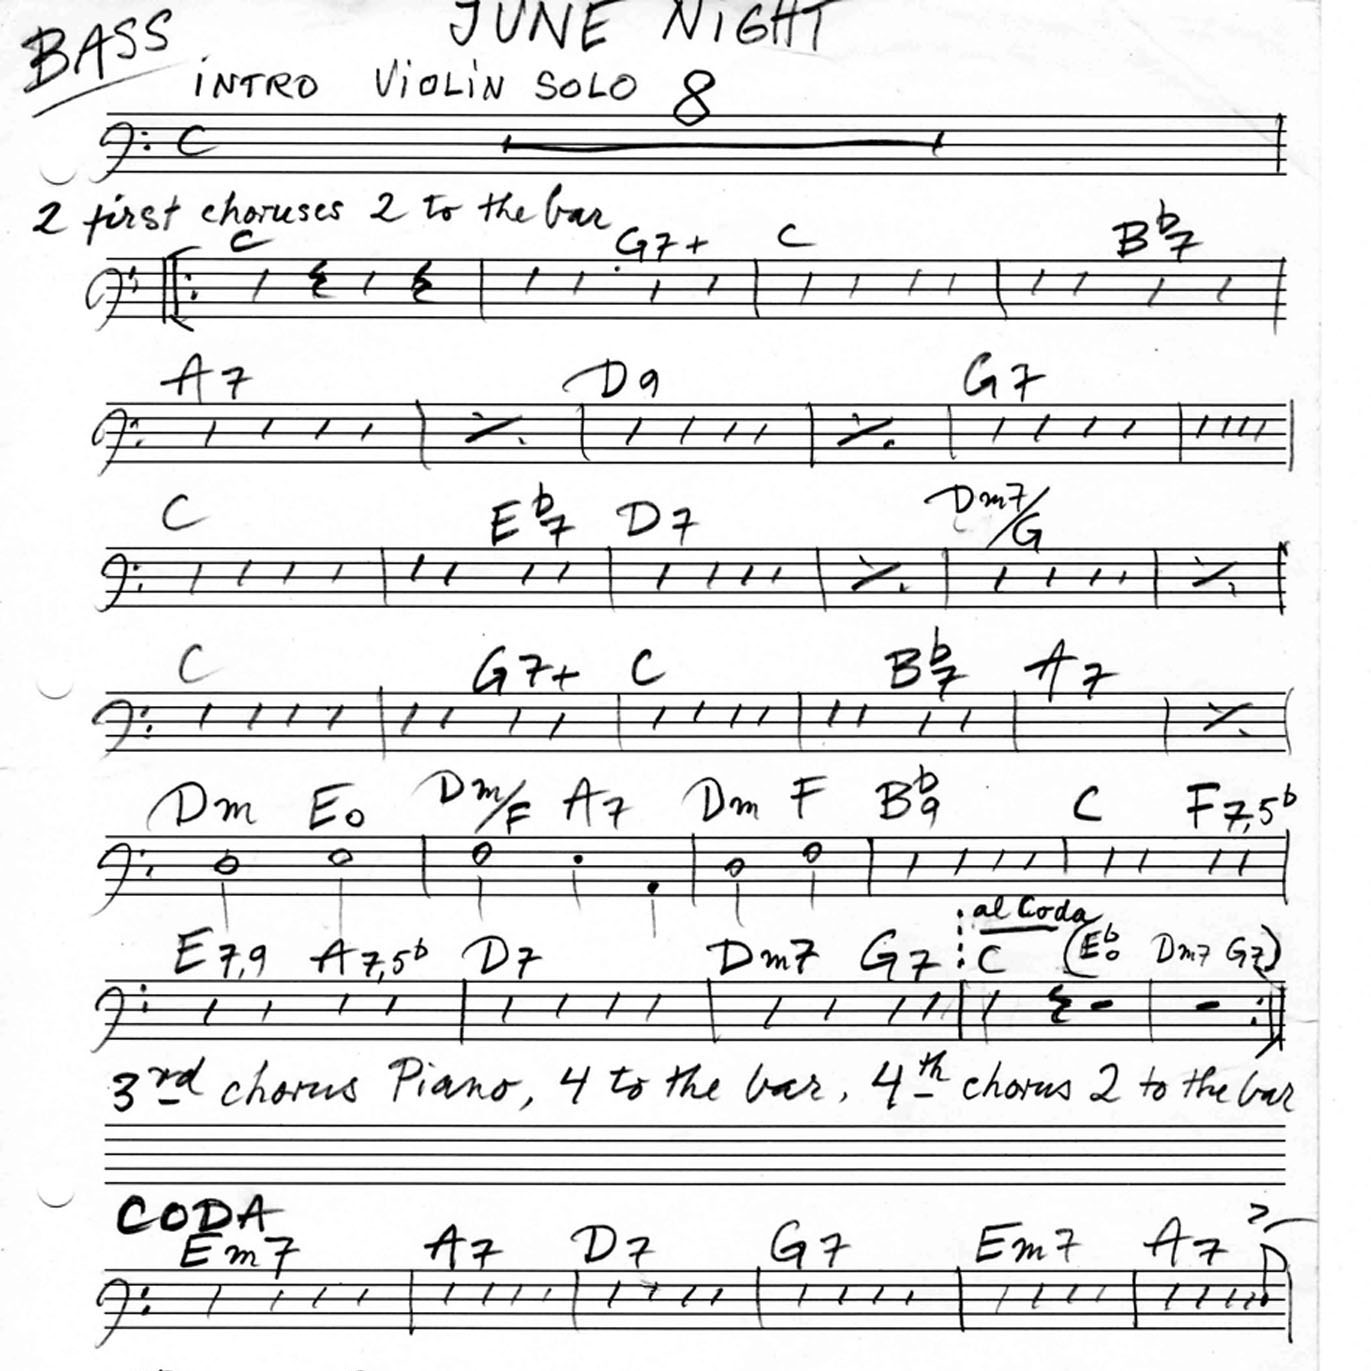 JUNE NIGHT
BASS
INTRO VIOLIN SOLO 8
C
2 first choruses 2 to the bar
C G7+ C Bb7
A7 D9 G7
C Eb7 D7 Dm7/G
C G7+ C Bb7 A7
Dm Eo Dm/F A7 Dm F Bb9 C F7,5b
al Coda
E7,9 A7,5b D7 Dm7 G7 C (Ebo Dm7 G7)
3rd chorus Piano, 4 to the bar, 4th chorus 2 to the bar
CODA
Em7 A7 D7 G7 Em7 A7